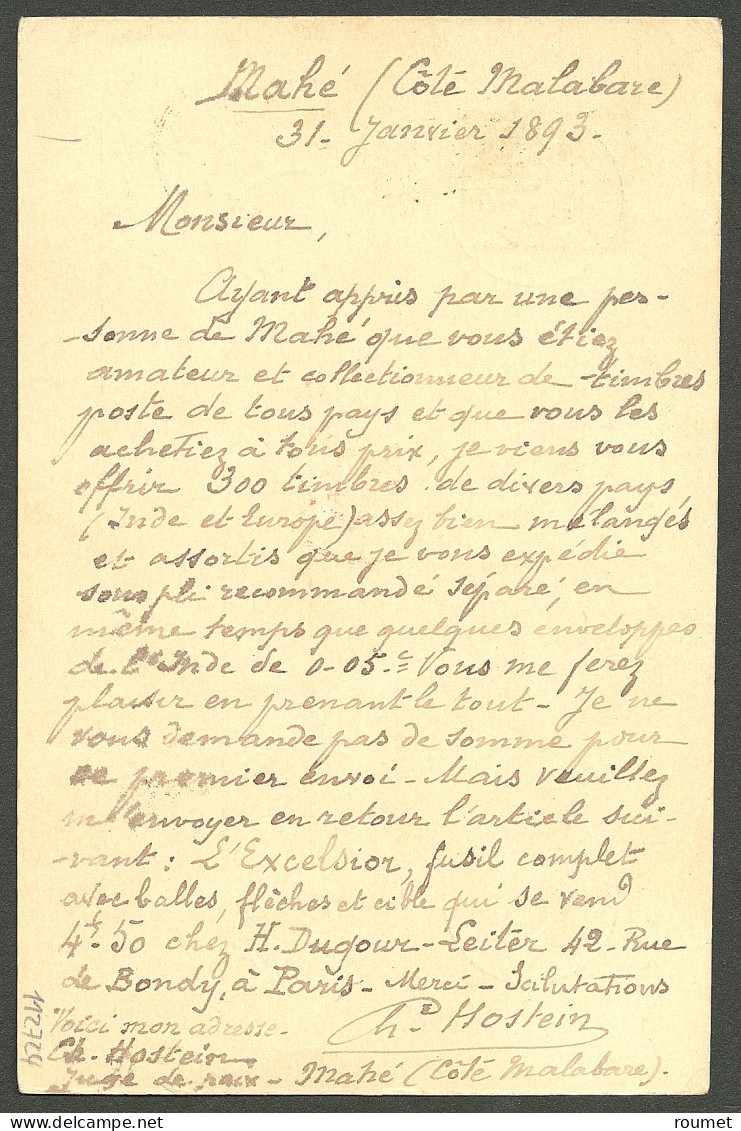 Mahé (Côte Malabare)
31- Janvier 1893-
Monsieur,
Ayant appris par une per-
-sonne de Mahé que vous étiez
amateur et collectionneur de timbres
poste de tous pays et que vous les
achetiez à tous prix, je viens vous
offrir 300 timbres de divers pays
(Inde et Europe) assez bien mélangés
et assortis que je vous expédie
sous pli recommandé séparé, en
même temps que quelques enveloppes
de l'Inde de 0-05.c Vous me ferez
plaisir en prenant le tout- Je ne
vous demande pas de somme pour
ce premier envoi- Mais veuillez
m'envoyer en retour l'article sui-
-vant: L'Excelsior, fusil complet
avec balles, flèches et cible qui se vend
4f-50 chez H. Dugour-Leiter 42- Rue
de Bondy, à Paris- Merci- Salutations
Voici mon adresse-
Ch. Hostein
Ch. Hostein
Juge de paix- Mahé (Côte Malabare).
112724
www.roumet.com